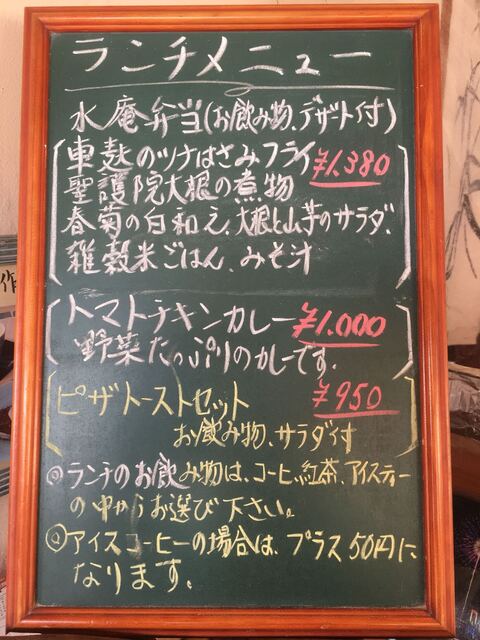 ランチメニュー
水庵弁当(お飲み物、デザート付)
車麩のツナはさみフライ ¥1,380
聖護院大根の煮物
春菊の白和え、大根と山芋のサラダ、
雑穀米ごはん、みそ汁
トマトチキンカレー ¥1.000
野菜たっぷりのカレーです。
ピザトーストセット ¥950
お飲み物、サラダ付
◎ランチのお飲み物は、コーヒ、紅茶、アイスティー
の中からお選び下さい。
◎アイスコーヒーの場合は、プラス50円に
なります。
作